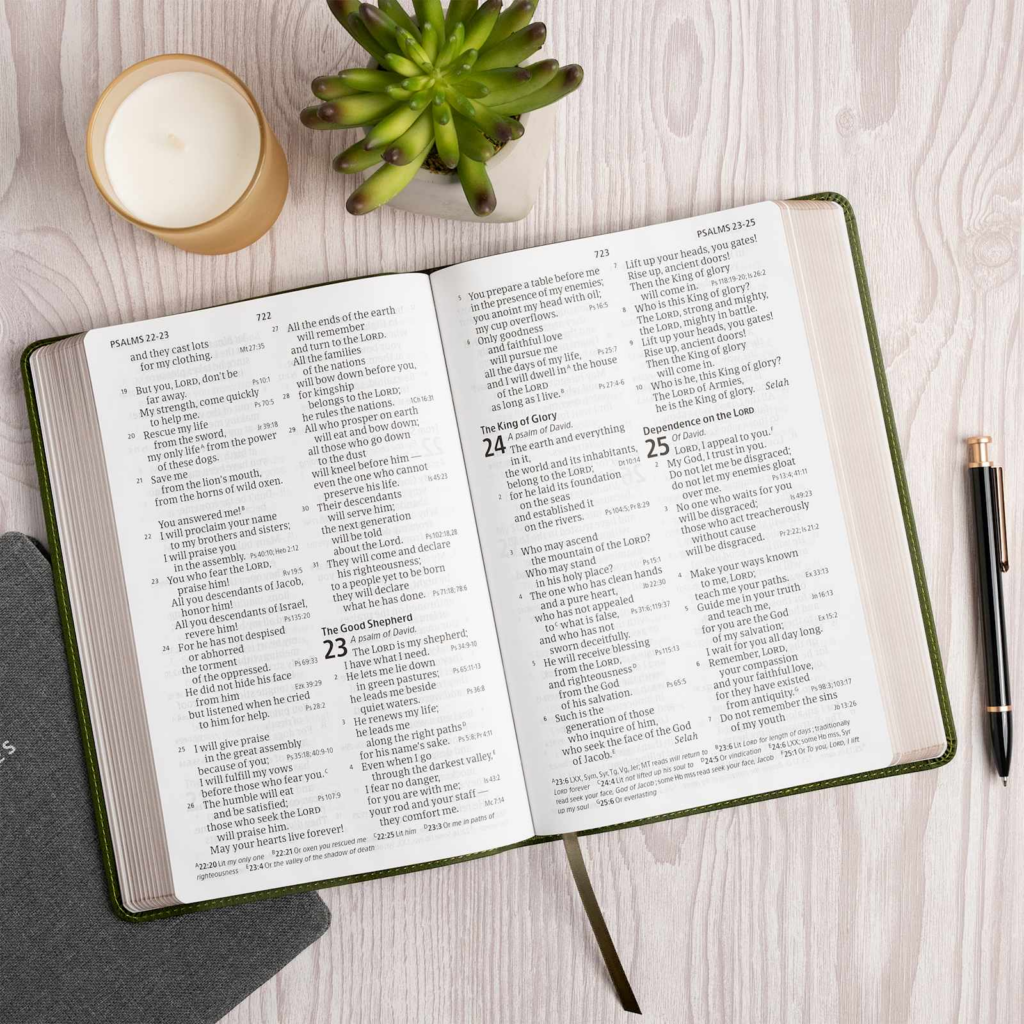 PSALMS 22-23
722
and they cast lots
for my clothing. Mt 27:35
19 But you, LORD, don't be
far away. Ps 10:1
My strength, come quickly
to help me. Ps 70:5
20 Rescue my life
from the sword, Jr 39:18
my only life^A from the power
of these dogs.
21 Save me
from the lion's mouth,
from the horns of wild oxen.
You answered me!^B
22 I will proclaim your name
to my brothers and sisters;
I will praise you
in the assembly. Ps 40:10; Heb 2:12
23 You who fear the LORD,
praise him! Rv 19:5
All you descendants of Jacob,
honor him!
All you descendants of Israel,
revere him! Ps 135:20
24 For he has not despised
or abhorred
the torment
of the oppressed. Ps 69:33
He did not hide his face
from him Ezk 39:29
but listened when he cried
to him for help. Ps 28:2
25 I will give praise
in the great assembly
because of you; Ps 35:18; 40:9-10
I will fulfill my vows
before those who fear you.^C
26 The humble will eat
and be satisfied; Ps 107:9
those who seek the LORD
will praise him.
May your hearts live forever!
27 All the ends of the earth
will remember
and turn to the LORD.
All the families
of the nations
will bow down before you,
28 for kingship
belongs to the LORD;
he rules the nations. 1Ch 16:31
29 All who prosper on earth
will eat and bow down;
all those who go down
to the dust
will kneel before him —
even the one who cannot
preserve his life. Is 45:23
30 Their descendants
will serve him;
the next generation
will be told
about the Lord. Ps 102:18,28
31 They will come and declare
his righteousness;
to a people yet to be born
they will declare
what he has done. Ps 71:18; 78:6
The Good Shepherd
23 A psalm of David.
The LORD is my shepherd;
I have what I need. Ps 34:9-10
2 He lets me lie down
in green pastures; Ps 65:11-13
he leads me beside
quiet waters. Ps 36:8
3 He renews my life;
he leads me
along the right paths^D
for his name's sake. Ps 5:8; Pr 4:11
4 Even when I go
through the darkest valley,^E
I fear no danger,
for you are with me; Is 43:2
your rod and your staff —
they comfort me. Mc 7:14
^A22:20 Lit my only one ^B22:21 Or oxen you rescued me ^C22:25 Lit him ^D23:3 Or me in paths of
righteousness ^E23:4 Or the valley of the shadow of death
723
PSALMS 23-25
5 You prepare a table before me
in the presence of my enemies;
you anoint my head with oil;
my cup overflows. Ps 16:5
6 Only goodness
and faithful love
will pursue me
all the days of my life, Ps 25:7
and I will dwell in^A the house
of the LORD
as long as I live.^B Ps 27:4-6
The King of Glory
24 A psalm of David.
The earth and everything
in it,
the world and its inhabitants,
belong to the LORD; Dt 10:14
2 for he laid its foundation
on the seas
and established it
on the rivers. Ps 104:5; Pr 8:29
3 Who may ascend
the mountain of the LORD?
Who may stand
in his holy place? Ps 15:1
4 The one who has clean hands
and a pure heart, Jb 22:30
who has not appealed
to^C what is false, Ps 31:6; 119:37
and who has not
sworn deceitfully.
5 He will receive blessing
from the LORD,
and righteousness^D Ps 115:13
from the God
of his salvation.
6 Such is the Ps 65:5
generation of those
who inquire of him,
who seek the face of the God
of Jacob.^E Selah
7 Lift up your heads, you gates!
Rise up, ancient doors!
Then the King of glory
will come in. Ps 118:19-20; Is 26:2
8 Who is this King of glory?
The LORD, strong and mighty,
the LORD, mighty in battle.
9 Lift up your heads, you gates!
Rise up, ancient doors!
Then the King of glory
will come in.
10 Who is he, this King of glory?
The LORD of Armies,
he is the King of glory. Selah
Dependence on the LORD
25 Of David.
LORD, I appeal to you.^F
2 My God, I trust in you.
Do not let me be disgraced;
do not let my enemies gloat
over me. Ps 13:4; 41:11
3 No one who waits for you
will be disgraced; Is 49:23
those who act treacherously
without cause
will be disgraced. Pr 2:22; Is 21:2
4 Make your ways known
to me, LORD;
teach me your paths. Ex 33:13
5 Guide me in your truth
and teach me, Jn 16:13
for you are the God
of my salvation;
I wait for you all day long. Ex 15:2
6 Remember, LORD,
your compassion
and your faithful love,
for they have existed
from antiquity.^G Ps 98:3; 103:17
7 Do not remember the sins
of my youth Jb 13:26
^A23:6 LXX, Sym, Syr, Tg, Vg, Jer; MT reads will return to ^B23:6 Lit LORD for length of days; traditionally
LORD forever ^C24:4 Lit not lifted up his soul to ^D24:5 Or vindication ^E24:6 LXX; some Hb mss, Syr
read seek your face, God of Jacob; some Hb mss read seek your face, Jacob ^F25:1 Or To you, LORD, I lift
up my soul ^G25:6 Or everlasting